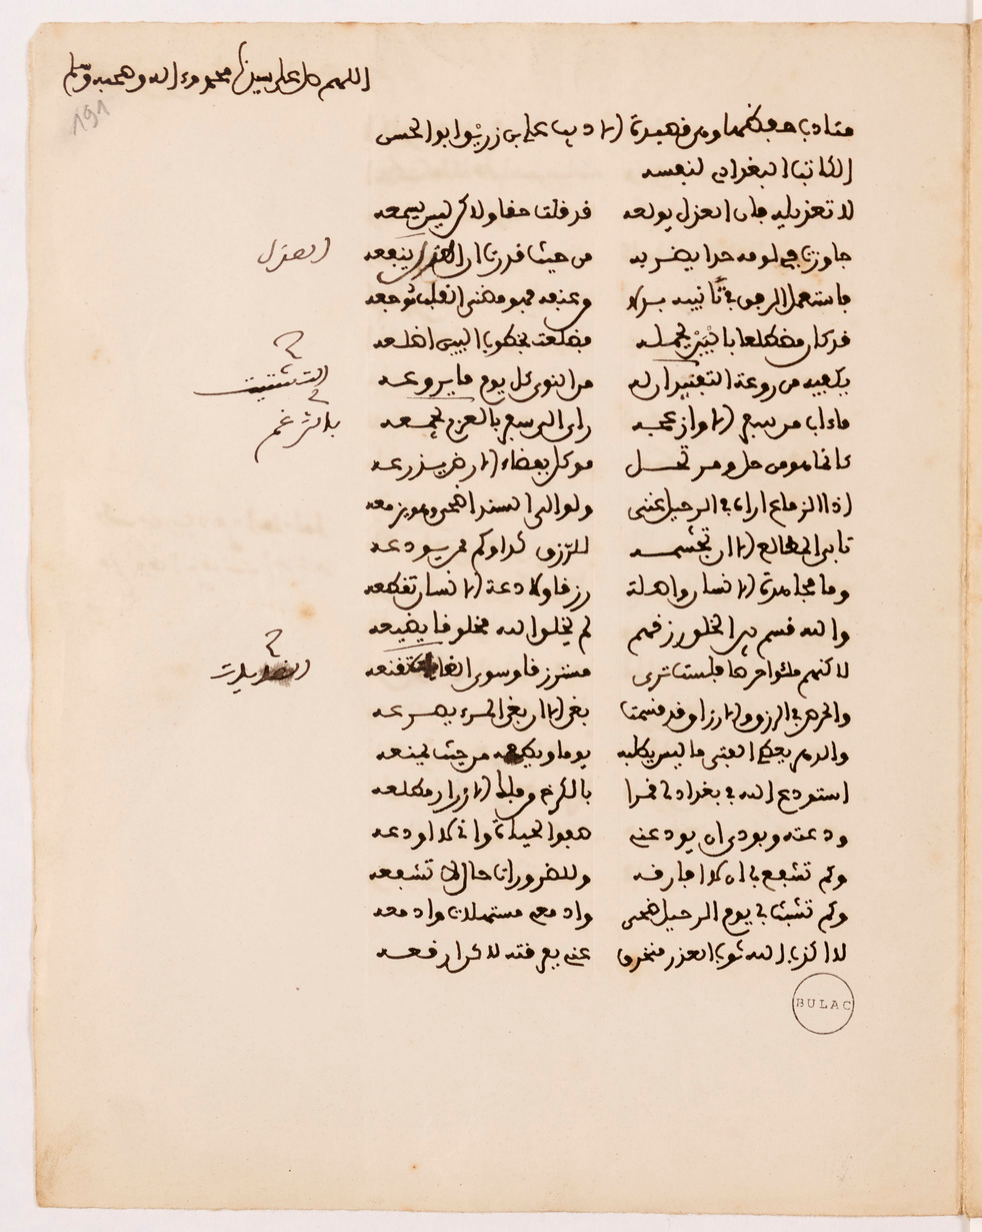 اللهم صل على سيدنا محمد وءاله وصحبه وسلم
191
مما يجب حفظهما ومن قصيدة الاديب علي بن زريق ابو الحسن
الكاتب البغدادي لنفسه
لا تعذليه فان العذل يولعه قد قلت حقا ولاكن ليس يسمعه
جاوزت في لومه حدا يضر به من حيث قدرت ان العذل ينفعه
العذل
فاستعمل الرفق في تانيبه بدلا من عنفه فهو مضنى القلب موجعه
قد كان مضطلعا بالبين يحمله فضلعت بخطوب البين اضلعه
يكفيه من روعة التفنيد ان له من النوى كل يوم ما يروعه
التشتيت
ما ءاب من سفر الا وازعجه راى الى سفر بالعزم يجمعه
بالرغم
كانما هو من حل ومرتحل موكل بفضاء الارض يذرعه
اذا الزماع اراه في الرحيل غنى ولو الى السند اضحى وهو يزمعه
تابى المطالع الا ان تجشمه للرزق كدا وكم ممن يودعه
وما مجاهدة الانسان واصلة رزقا ولا دعة الانسان تقطعه
والله قسم بين الخلق رزقهم لم يخلق الله مخلوقا يضيعه
لاكنهم ملئوا حرصا فلست ترى مسترزقا وسوى الغايات تقنعه
الغايات
والحرص في الرزق والارزاق قد قسمت بغي الا ان بغي المرء يصرعه
والدهر يعطي الفتى ما ليس يطلبه يوما ويطعمه من حيث يمنعه
استودع الله في بغداد لي قمرا بالكرخ من فلك الازرار مطلعه
ودعته وبودي ان يودعني صفو الحياة واني لا اودعه
وكم تشفع بي ان لا افارقه وللضرورات حال لا تشفعه
وكم تشبث بي يوم الرحيل ضحى وادمعي مستهلات وادمعه
لا اكذب الله ثوب العذر منخرق عني بفرقته لاكن ارقعه
BULAC